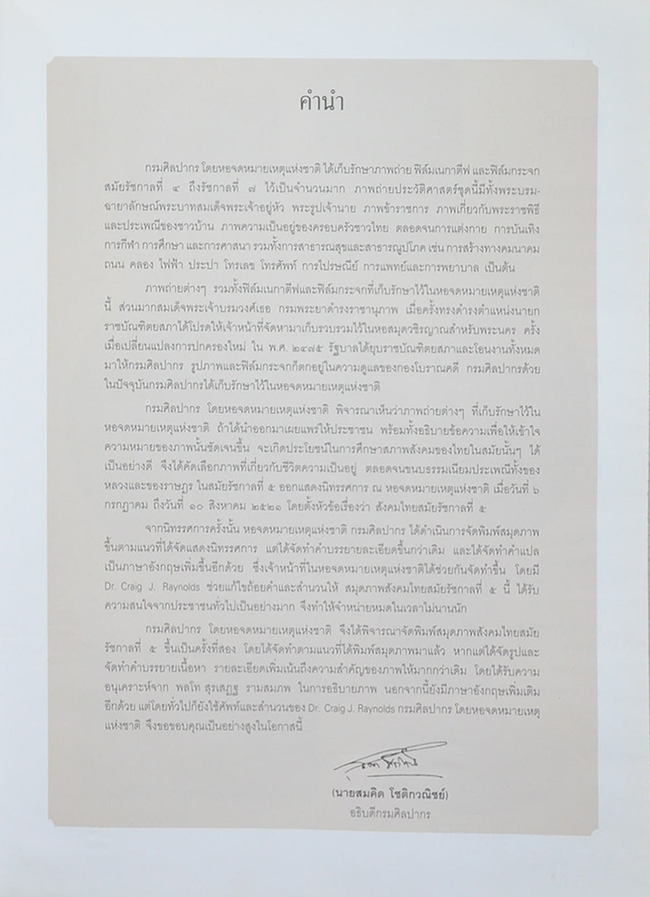 คำนำ
กรมศิลปากร โดยหอจดหมายเหตุแห่งชาติ ได้เก็บรักษาภาพถ่าย ฟิล์มเนกาตีฟ และฟิล์มกระจก
สมัยรัชกาลที่ ๔ ถึงรัชกาลที่ ๗ ไว้เป็นจำนวนมาก ภาพถ่ายประวัติศาสตร์ชุดนี้มีทั้งพระบรม-
ฉายาลักษณ์พระบาทสมเด็จพระเจ้าอยู่หัว พระรูปเจ้านาย ภาพข้าราชการ ภาพเกี่ยวกับพระราชพิธี
และประเพณีของชาวบ้าน ภาพความเป็นอยู่ของครอบครัวชาวไทย ตลอดจนการแต่งกาย การบันเทิง
การกีฬา การศึกษา และการศาสนา รวมทั้งการสาธารณสุขและสาธารณูปโภค เช่น การสร้างทางคมนาคม
ถนน คลอง ไฟฟ้า ประปา โทรเลข โทรศัพท์ การไปรษณีย์ การแพทย์และการพยาบาล เป็นต้น
ภาพถ่ายต่างๆ รวมทั้งฟิล์มเนกาตีฟและฟิล์มกระจกที่เก็บรักษาไว้ในหอจดหมายเหตุแห่งชาติ
นี้ ส่วนมากสมเด็จพระเจ้าบรมวงศ์เธอ กรมพระยาดำรงราชานุภาพ เมื่อครั้งทรงดำรงตำแหน่งนายก
ราชบัณฑิตยสภาได้โปรดให้เจ้าหน้าที่จัดหามาเก็บรวบรวมไว้ในหอสมุดวชิรญาณสำหรับพระนคร ครั้ง
เมื่อเปลี่ยนแปลงการปกครองใหม่ ใน พ.ศ. ๒๔๗๕ รัฐบาลได้ยุบราชบัณฑิตยสภาและโอนงานทั้งหมด
มาให้กรมศิลปากร รูปภาพและฟิล์มกระจกก็ตกอยู่ในความดูแลของกองโบราณคดี กรมศิลปากรด้วย
ในปัจจุบันกรมศิลปากรได้เก็บรักษาไว้ในหอจดหมายเหตุแห่งชาติ
กรมศิลปากร โดยหอจดหมายเหตุแห่งชาติ พิจารณาเห็นว่าภาพถ่ายต่างๆ ที่เก็บรักษาไว้ใน
หอจดหมายเหตุแห่งชาติ ถ้าได้นำออกมาเผยแพร่ให้ประชาชน พร้อมทั้งอธิบายข้อความเพื่อให้เข้าใจ
ความหมายของภาพนั้นชัดเจนขึ้น จะเกิดประโยชน์ในการศึกษาสภาพสังคมของไทยในสมัยนั้นๆ ได้
เป็นอย่างดี จึงได้คัดเลือกภาพที่เกี่ยวกับชีวิตความเป็นอยู่ ตลอดจนขนบธรรมเนียมประเพณีทั้งของ
หลวงและของราษฎร ในสมัยรัชกาลที่ ๕ ออกแสดงนิทรรศการ ณ หอจดหมายเหตุแห่งชาติ เมื่อวันที่ ๖
กรกฎาคม ถึงวันที่ ๑๐ สิงหาคม ๒๕๒๑ โดยตั้งหัวข้อเรื่องว่า สังคมไทยสมัยรัชกาลที่ ๕
จากนิทรรศการครั้งนั้น หอจดหมายเหตุแห่งชาติ กรมศิลปากร ได้ดำเนินการจัดพิมพ์สมุดภาพ
ขึ้นตามแนวที่ได้จัดแสดงนิทรรศการ แต่ได้จัดทำคำบรรยายละเอียดขึ้นกว่าเดิม และได้จัดทำคำแปล
เป็นภาษาอังกฤษเพิ่มขึ้นอีกด้วย ซึ่งเจ้าหน้าที่ในหอจดหมายเหตุแห่งชาติได้ช่วยกันจัดทำขึ้น โดยมี
Dr. Craig J. Raynolds ช่วยแก้ไขถ้อยคำและสำนวนให้ สมุดภาพสังคมไทยสมัยรัชกาลที่ ๕ นี้ ได้รับ
ความสนใจจากประชาชนทั่วไปเป็นอย่างมาก จึงทำให้จำหน่ายหมดในเวลาไม่นานนัก
กรมศิลปากร โดยหอจดหมายเหตุแห่งชาติ จึงได้พิจารณาจัดพิมพ์สมุดภาพสังคมไทยสมัย
รัชกาลที่ ๕ ขึ้นเป็นครั้งที่สอง โดยได้จัดทำตามแนวที่ได้พิมพ์สมุดภาพมาแล้ว หากแต่ได้จัดรูปและ
จัดทำคำบรรยายเนื้อหา รายละเอียดเพิ่มเน้นถึงความสำคัญของภาพให้มากกว่าเดิม โดยได้รับความ
อนุเคราะห์จาก พลโท สุรเสฏฐ รามสมภพ ในการอธิบายภาพ นอกจากนี้ยังมีภาษาอังกฤษเพิ่มเติม
อีกด้วย แต่โดยทั่วไปก็ยังใช้ศัพท์และสำนวนของ Dr. Craig J. Raynolds กรมศิลปากร โดยหอจดหมายเหตุ
แห่งชาติ จึงขอขอบคุณเป็นอย่างสูงในโอกาสนี้
(นายสมคิด โชติกวณิชย์)
อธิบดีกรมศิลปากร